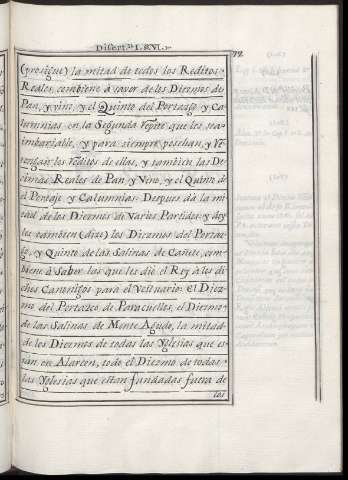 Disert.ⁿ I. §.VI.
72
(prosigue) la mitad de todos los Reditos
Reales, combiene à saver de los Diezmos de
Pan, y vino, y el Quinto del Portazgo, y Ca
lumnias en la Segunda repite que les sea
imbariable, y para siempre poschan, y
tengan los reditos de ellas, y tambien las De
cimas Reales de Pan y Vino, y el Quinto de
el Portazgo y Calumnias: Despues dà la mi
tad de los Diezmos de Varios Partidos, y
les tambien (dize) los Diezmos del Portaz
go, y Quinto de las Salinas de Cañete, com
biene à Saber las que les diò el Rey à los di
chos Canonigos para el Vestuario: el Diez
mo del Portazgo de Paracuellos, el Diezmo
de las Salinas de Monte Agudo, la mitad
de los Diezmos de todas las Yglesias que es
tàn en Alarcon, todo el Diezmo de todas
las Yglesias que estan fundadas fuera de
los